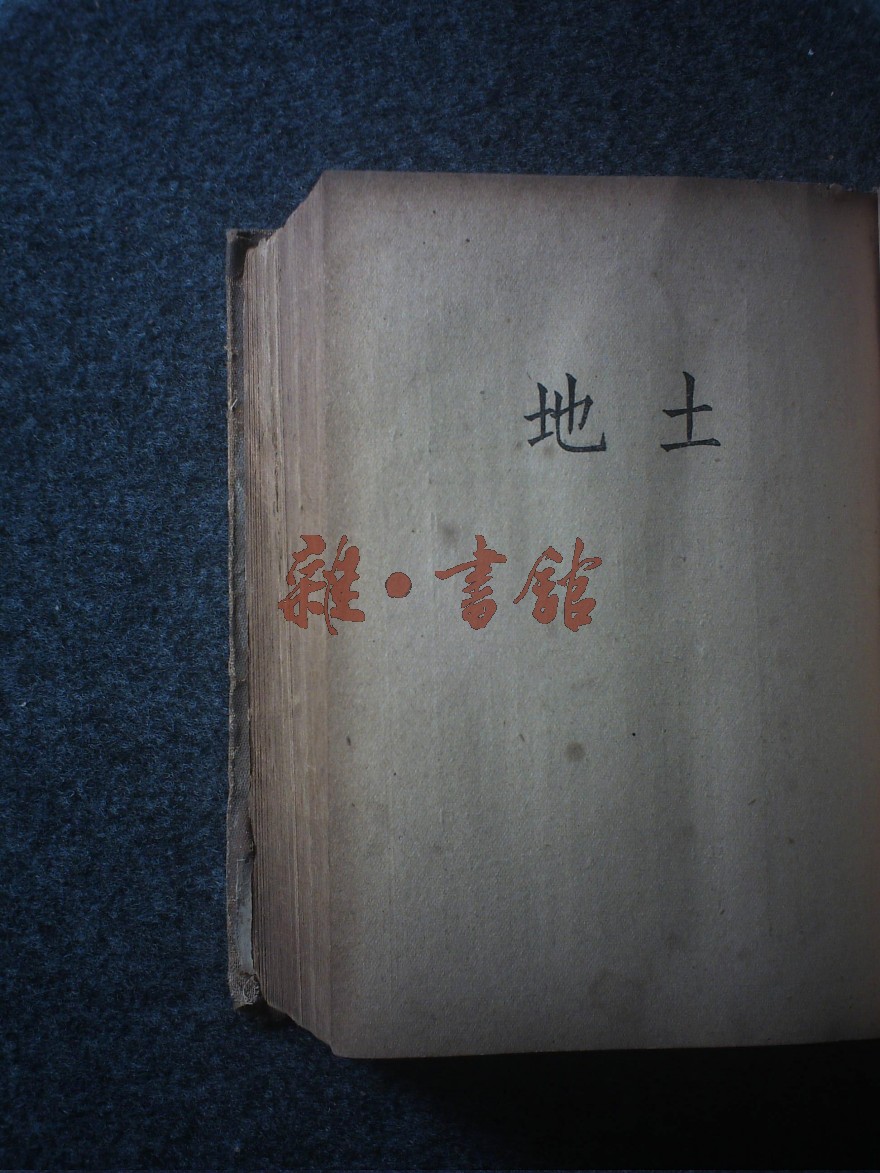 土地
雜·書館